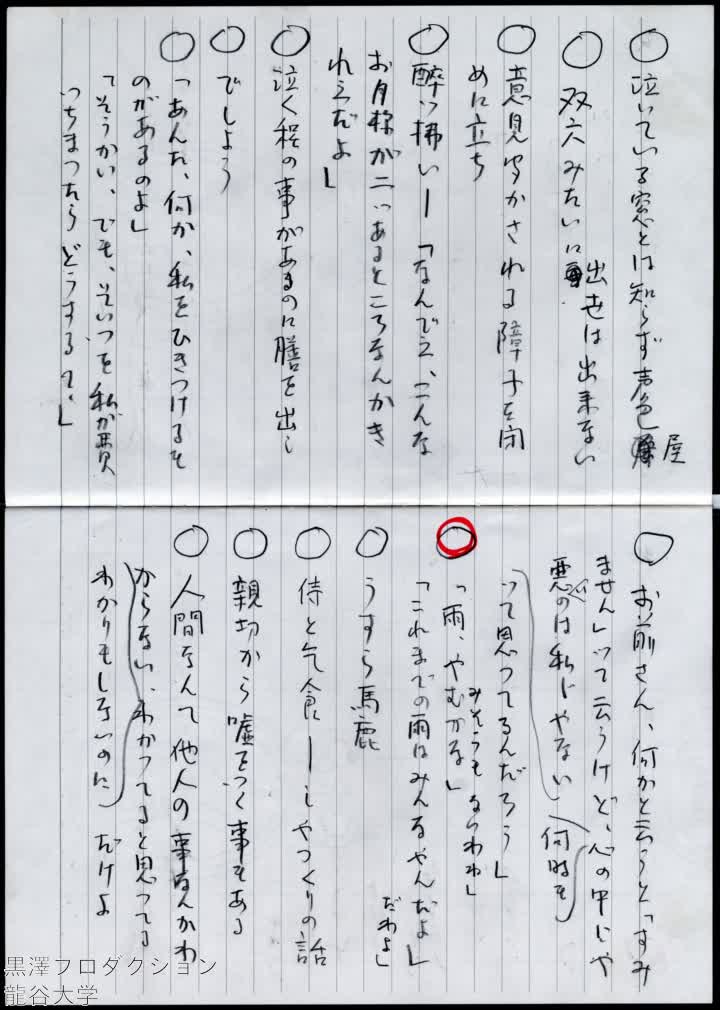 泣いている窓とは知らず声色屋
双六みたいに出世は出来ない
意見聞かされる障子を閉
めに立ち
酔っ拂いー「なんでえ、こんな
お月様が二ツあるところなんかき
れえだよ」
泣く程の事があるのに膳を出し
でしょう
「あんた、何か、私をひきつけるも
のがあるのよ」
「そうかい、でも、そいつを私が貰
っちまったらどうする、
お前さん、何かと云うと「すみ
ません」って云うけど、心の中じゃ
悪いのは私じゃない 何時も
って思ってるんだろう」
みそうもないわね」
「雨、やむかな」
「これまでの雨はみんなやんだよ」
だわよ」
うすら馬鹿
侍と乞食ーしゃっくりの話
親切から嘘をつく事もある
人間なんて他人の事なんかわ
からない、わかってると思ってる
わかりもしないのに だけよ
黒澤プロダクション
龍谷大学